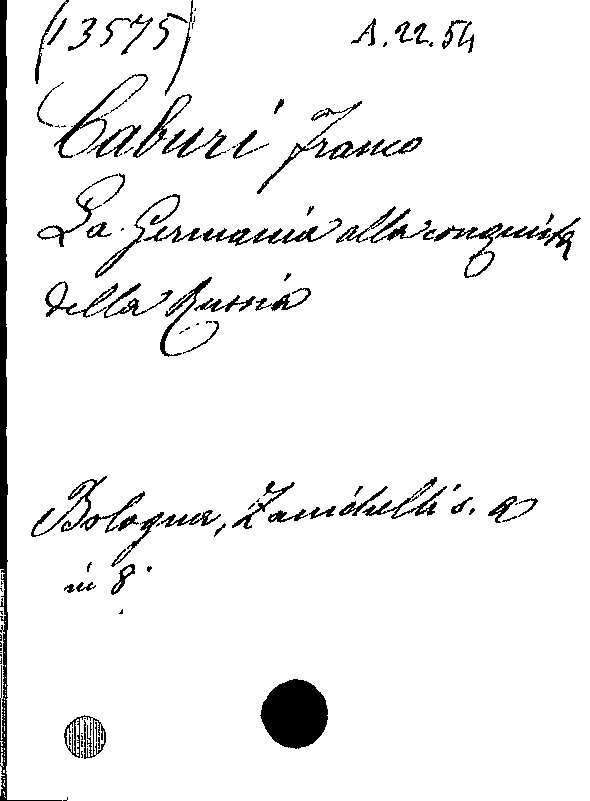 (13575) A.22.54
Caburi Franco
La Germania alla conquista
della Russia
Bologna, Zanichelli s. a
in 8°